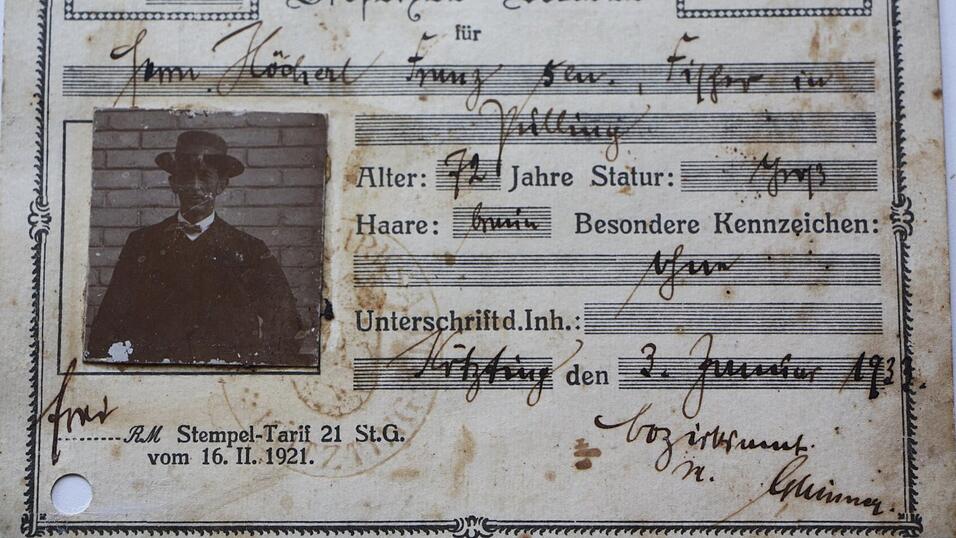 für
Herrn Höcherl Franz sen., Fischer in
Pulling
Alter: 72 Jahre Statur: Groß
Haare: braun Besondere Kennzeichen:
ohne
Unterschrift d. Inh.:
Kötzting den 3. Januar 193
frei
RM Stempel-Tarif 21 St.G.
vom 16. II. 1921.
Bezirksamt.